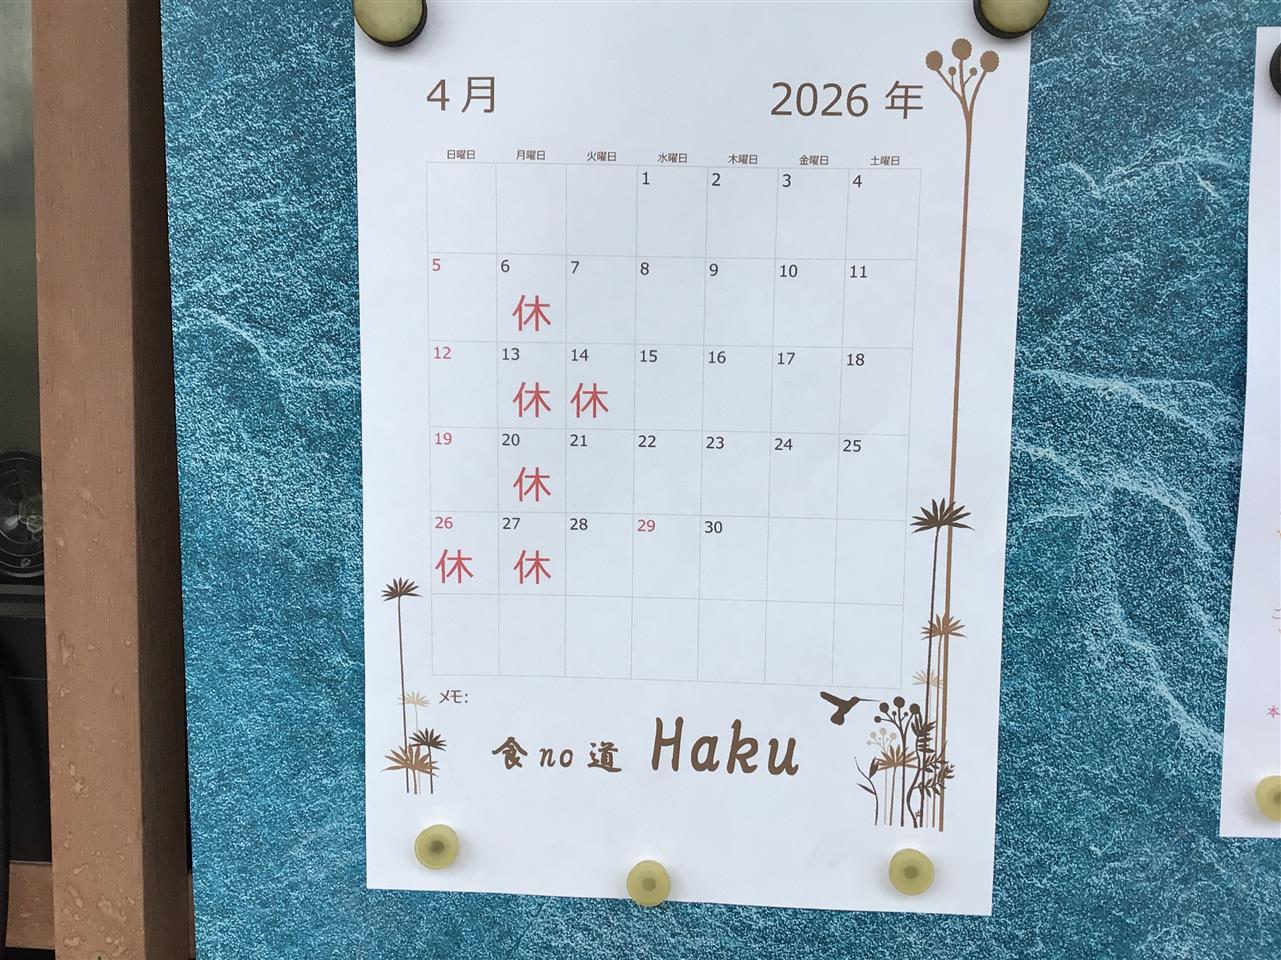 4月 2026年
日曜日 月曜日 火曜日 水曜日 木曜日 金曜日 土曜日
1 2 3 4
5 6 7 8 9 10 11
休
12 13 14 15 16 17 18
休 休
19 20 21 22 23 24 25
休
26 27 28 29 30
休 休
メモ:
食no道 Haku
本